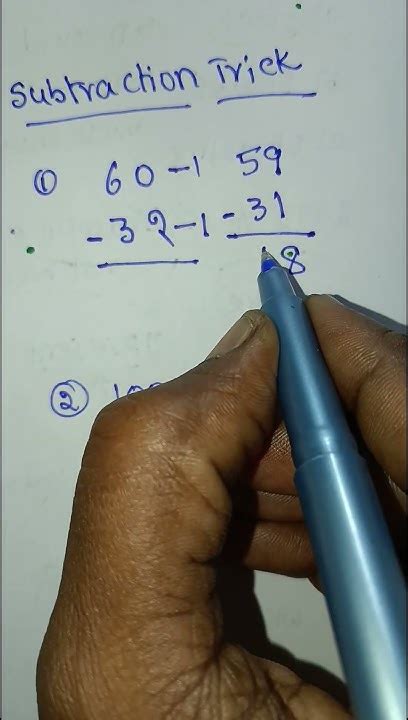 Subtraction Trick
① 60 -1 59
- 32 -1 - 31
8
②